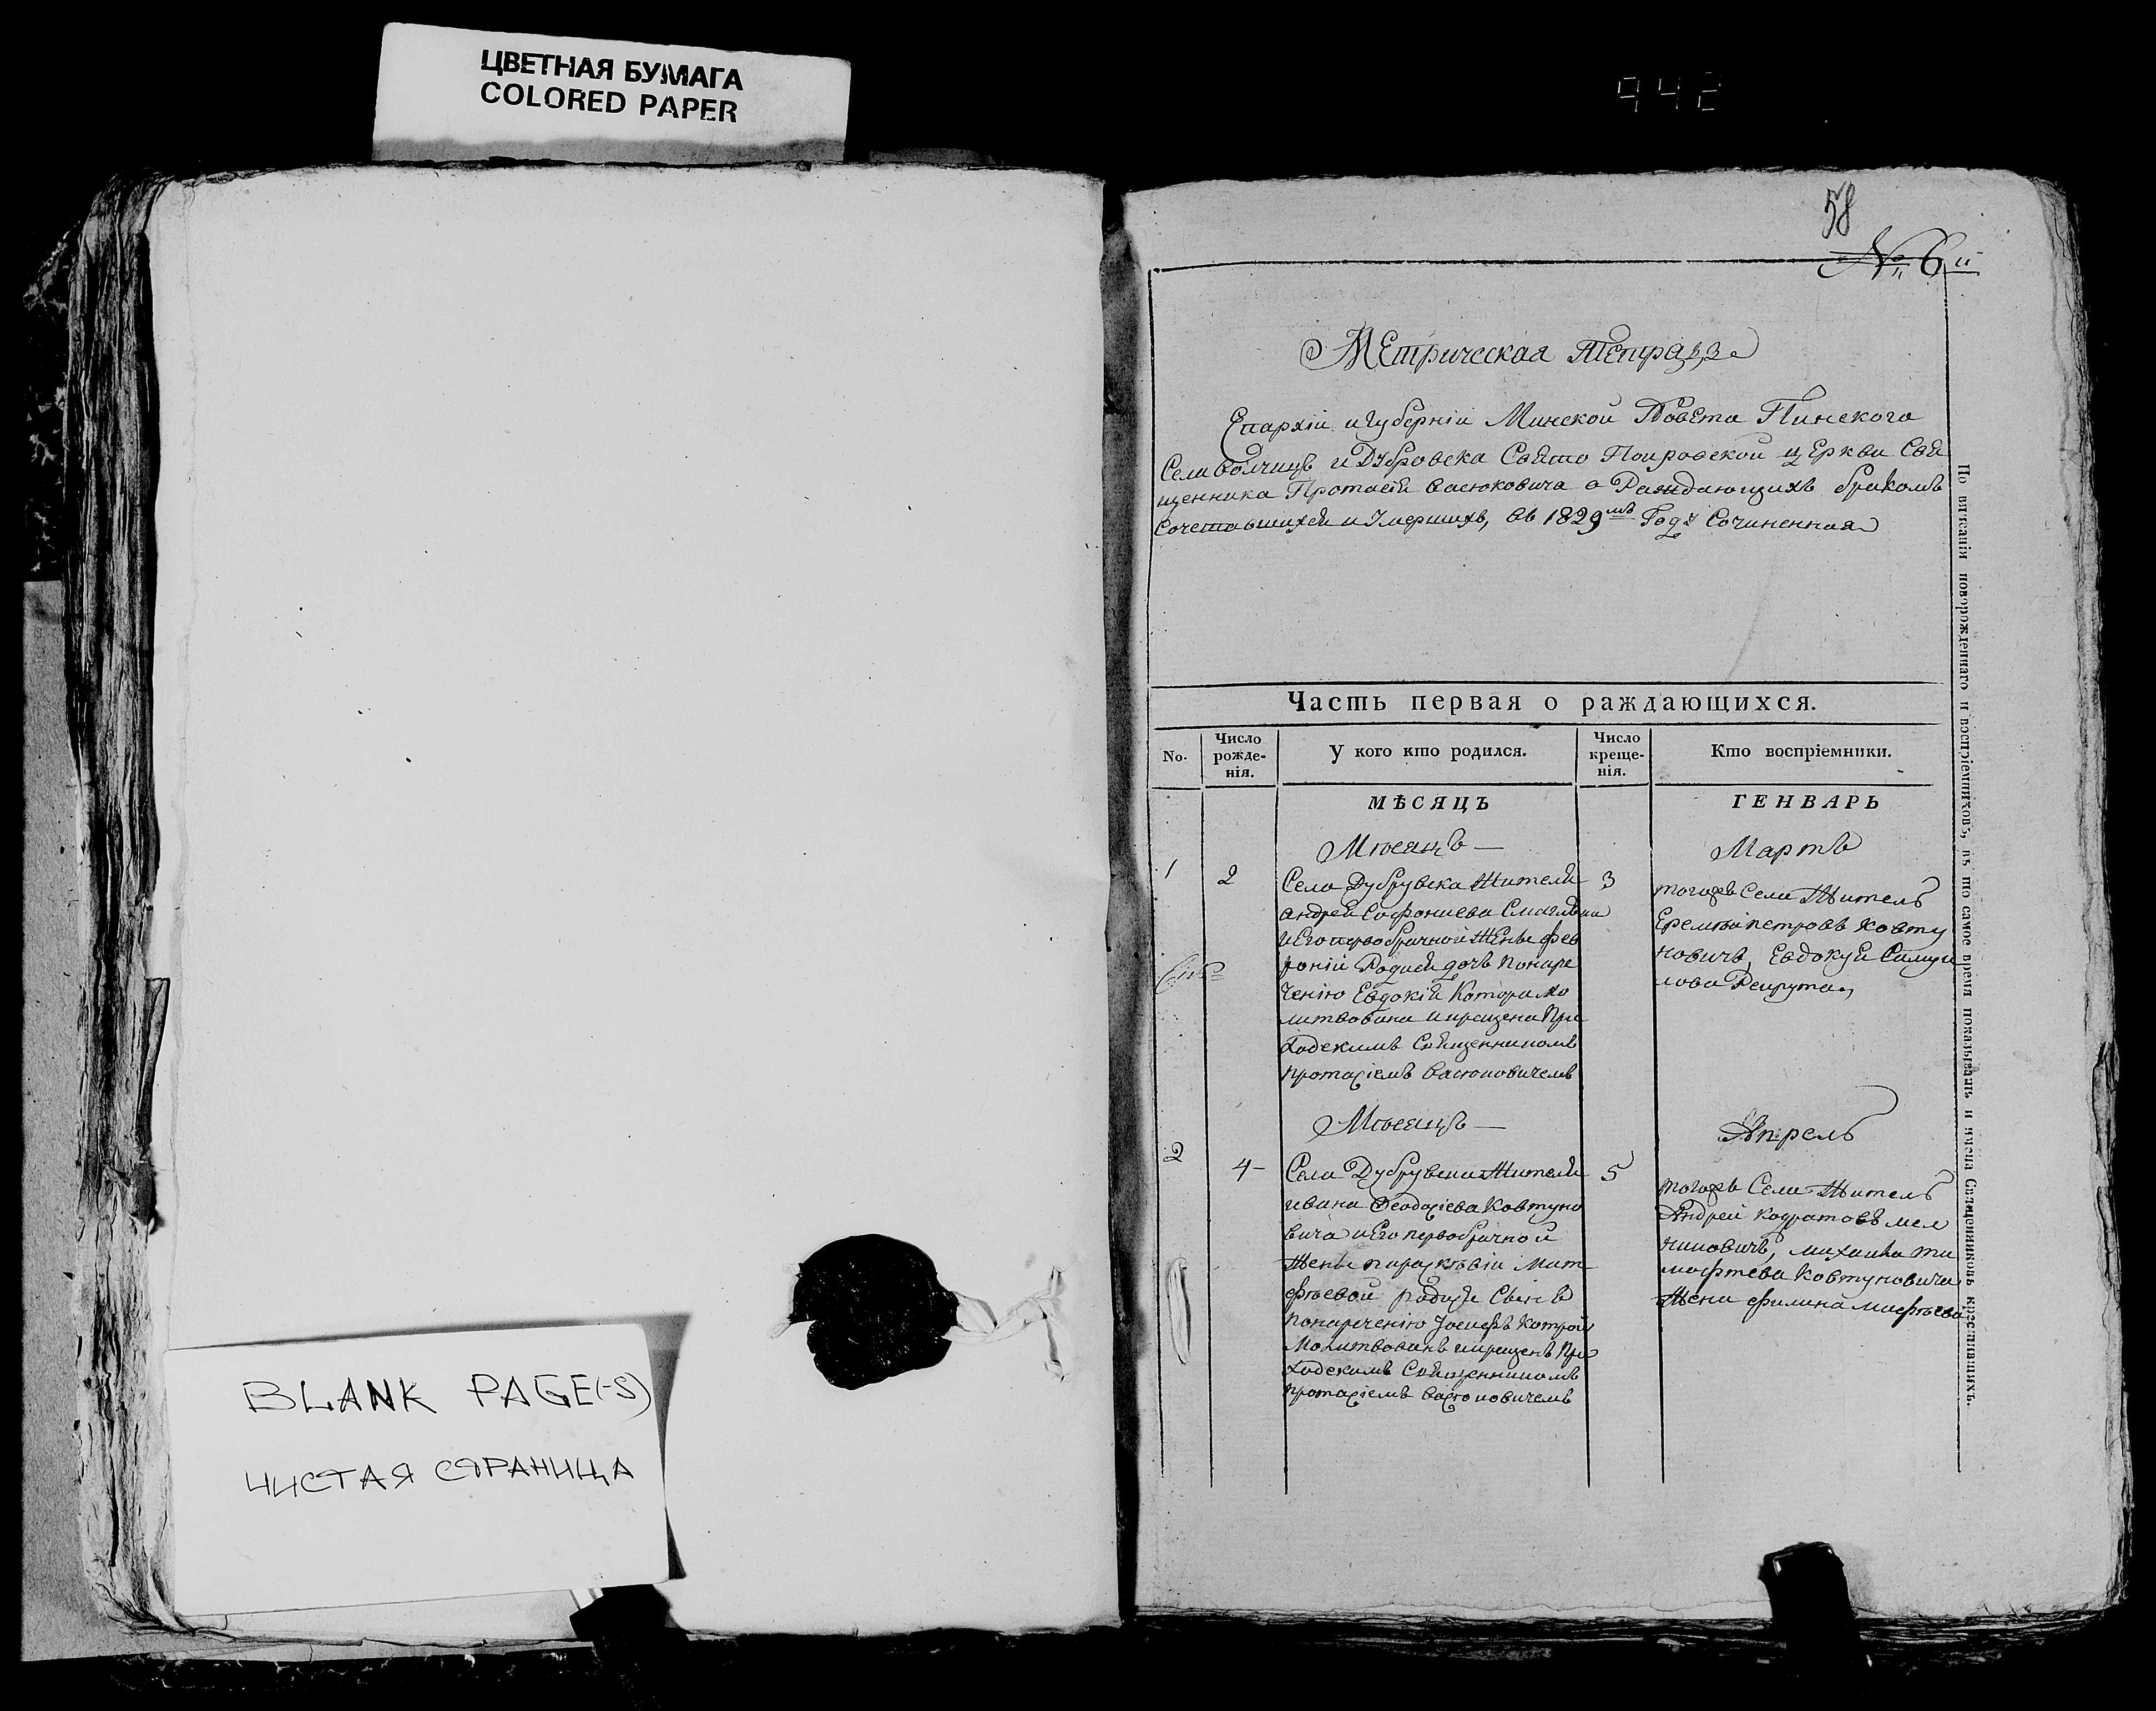 ЦВЕТНАЯ БУМАГА
COLORED PAPER
942
BLANK PAGE(-S)
ЧИСТАЯ СТРАНИЦА
58
№ 6й
Метрическая тетрадь
Епархіи и Губерніи Минской Повета Пинского
Села Волчицъ и Дубровска Свято Покровской церкви Свя
щенника Протасія Васюковича о Раждающихъ бракомъ
Сочетавшихся и Умершихъ, въ 1829мъ Году Сочиненная
Часть первая о раждающихся.
No.
Число рожде-нія.
У кого кто родился.
Число креще-нія.
Кто воспріемники.
МѢСЯЦЪ
ГЕНВАРЬ
Мѣсяцъ —
Мартъ
1
2
Села Дубрувска Жителя
андрея Софониева
И Его первобрачной Жены фев
роніи Родися дочъ понаре
ченію Евдокія Котора мо
литвована и крещена При
ходскимъ Священникомъ
протасіемъ Васюковичемъ
3
тогожъ Села Житель
Еремѣй петровъ Ковту
новичъ, Евдокуя Саму
лова
Мѣсяцъ —
Апрель
2
4-
Села Дубрувска Жителя
ивана Феодосіева Ковтуно
вича и Его первобрачной
Жены параскѣвіи Мат
фѣевой родися Сынъ
понареченію Іосифъ Которій
Молитвованъ и крещенъ При
ходскимъ Священникомъ
протасіемъ Васюковичемъ
5
тогожъ Села Житель
Андрей Кодратовъ мел
никовичъ, михаила ти
мофтева Ковтуновича
Жена
По вписаніи новорожденнаго и воспріемниковъ, въ то самое время показывать и имена Священниковъ крестившихъ.